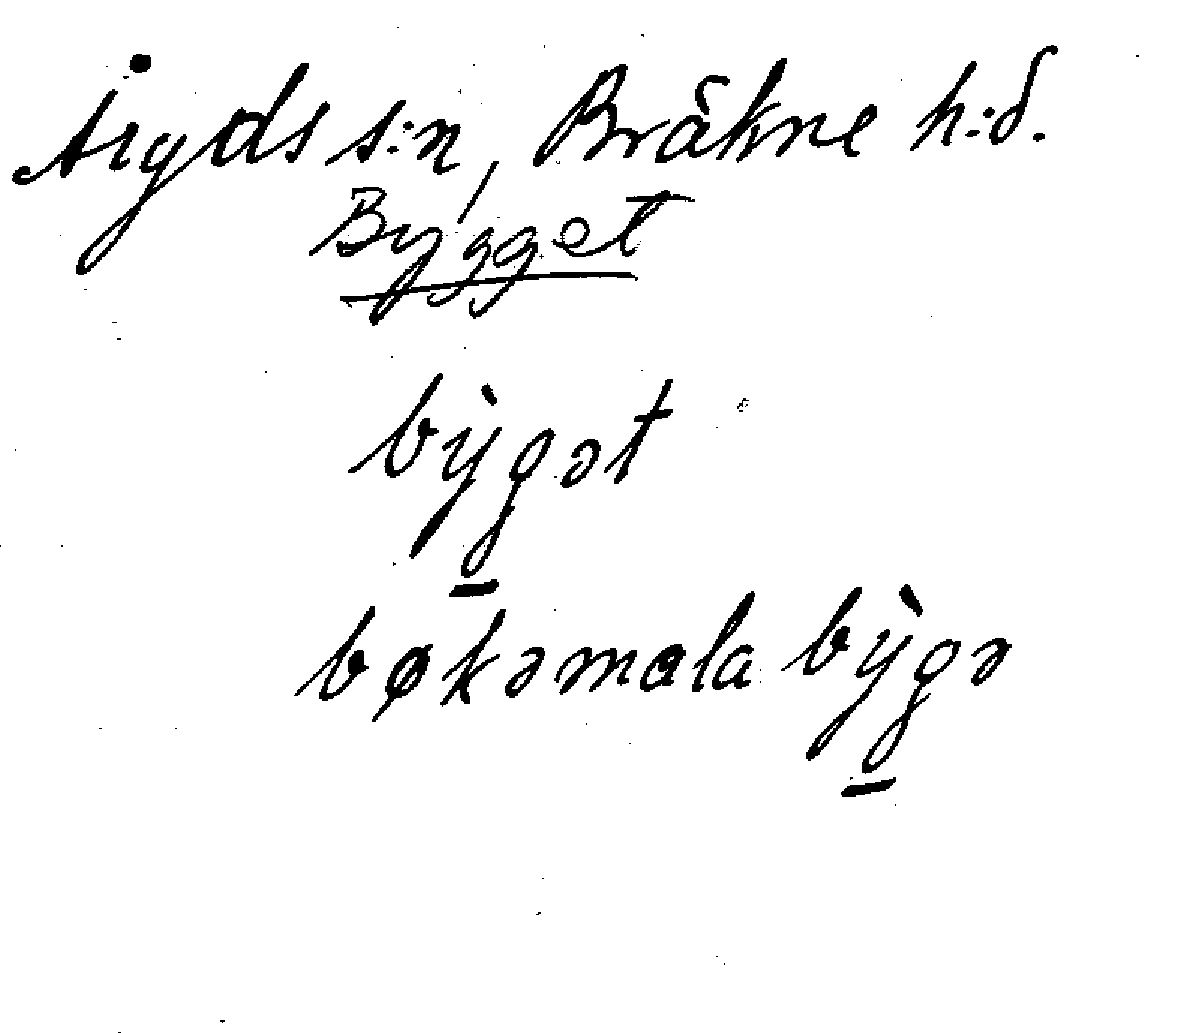 Åryds s:n, Bräkne h:d.
Bygget
bỳgət
bøkəmala bỳgə